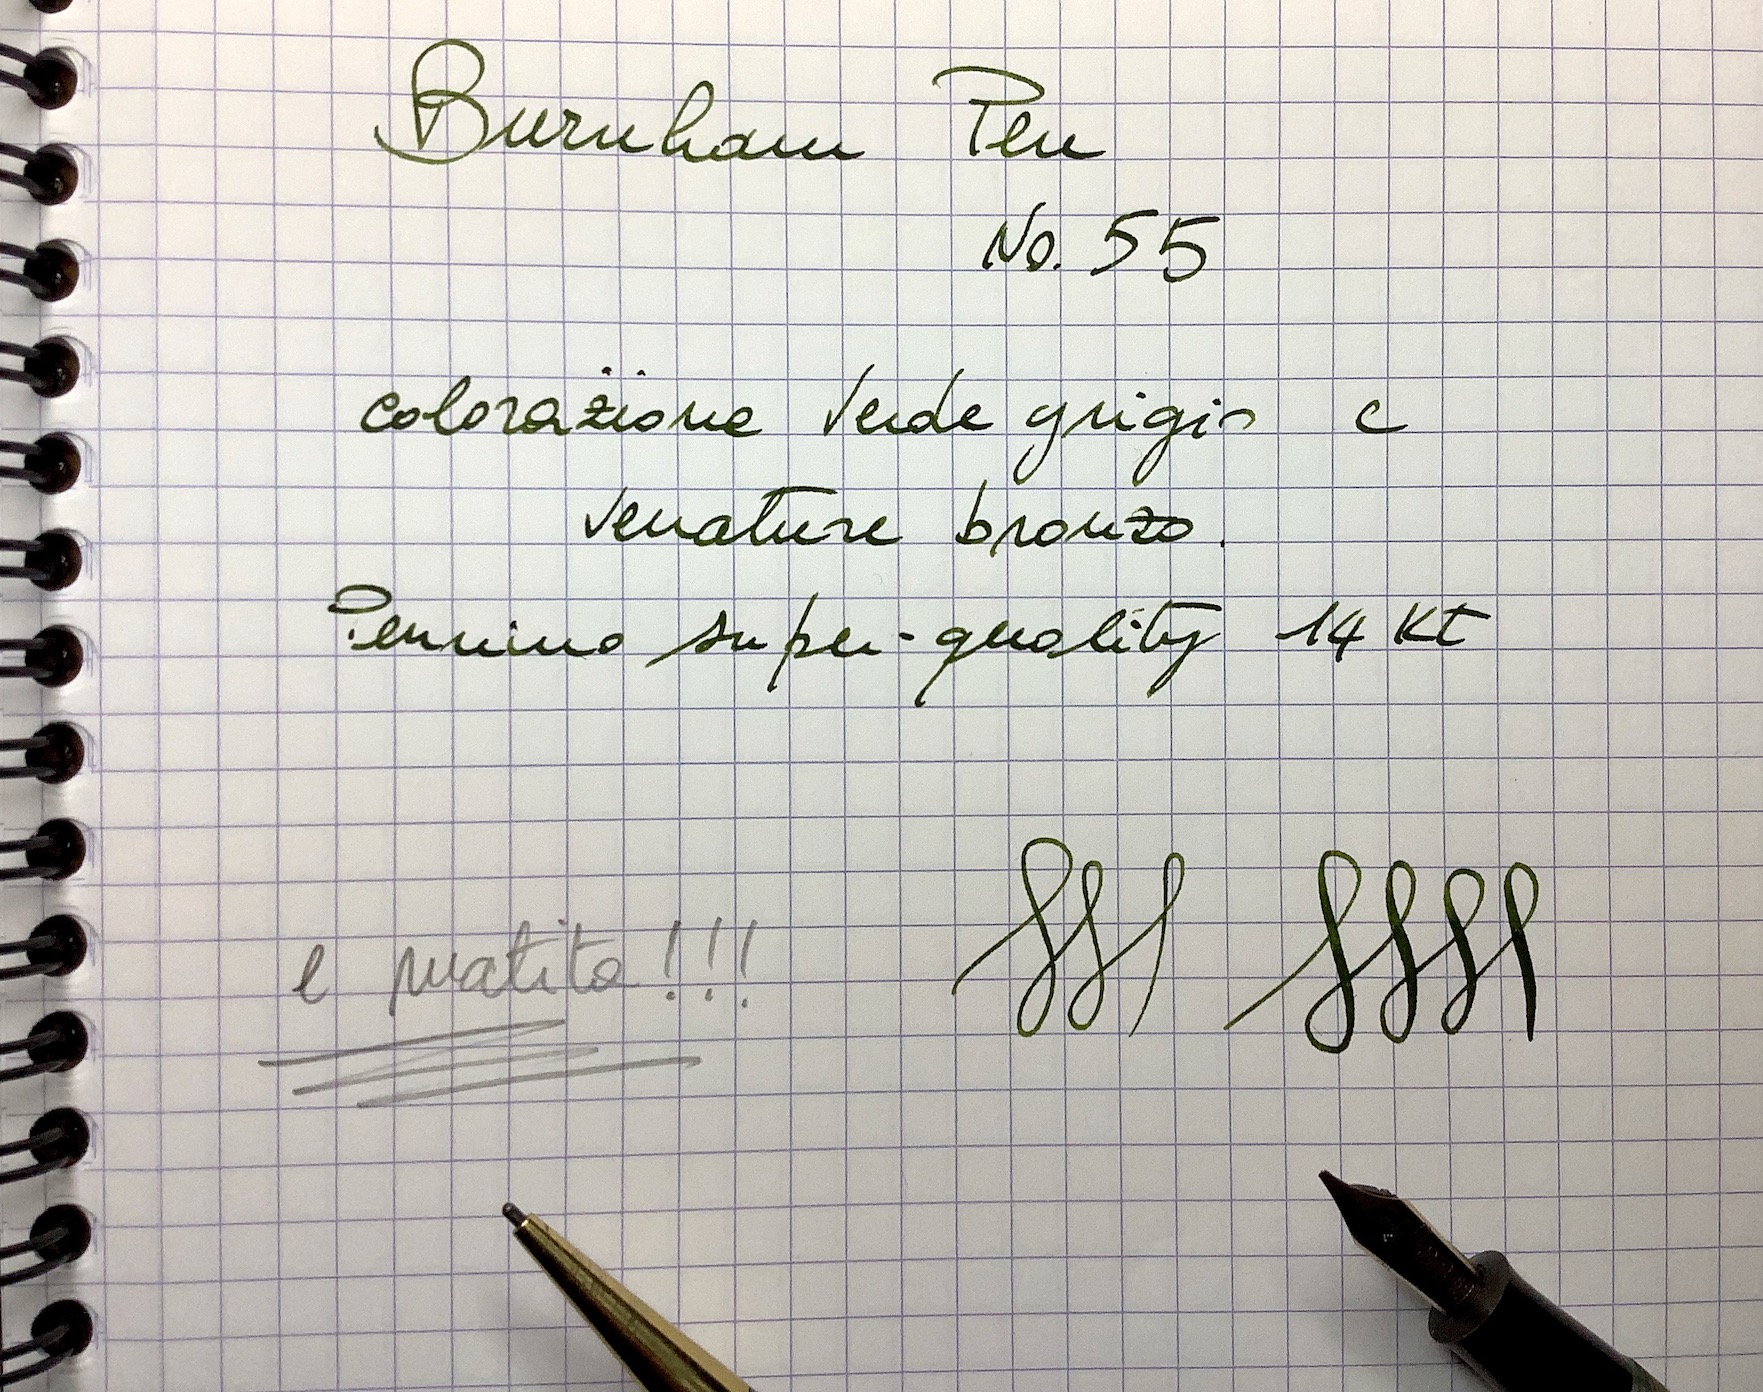 Burnham Pen
No. 55
colorazione verde grigio e
venature bronzo.
Pennino super-quality 14 Kt
e matita!!!